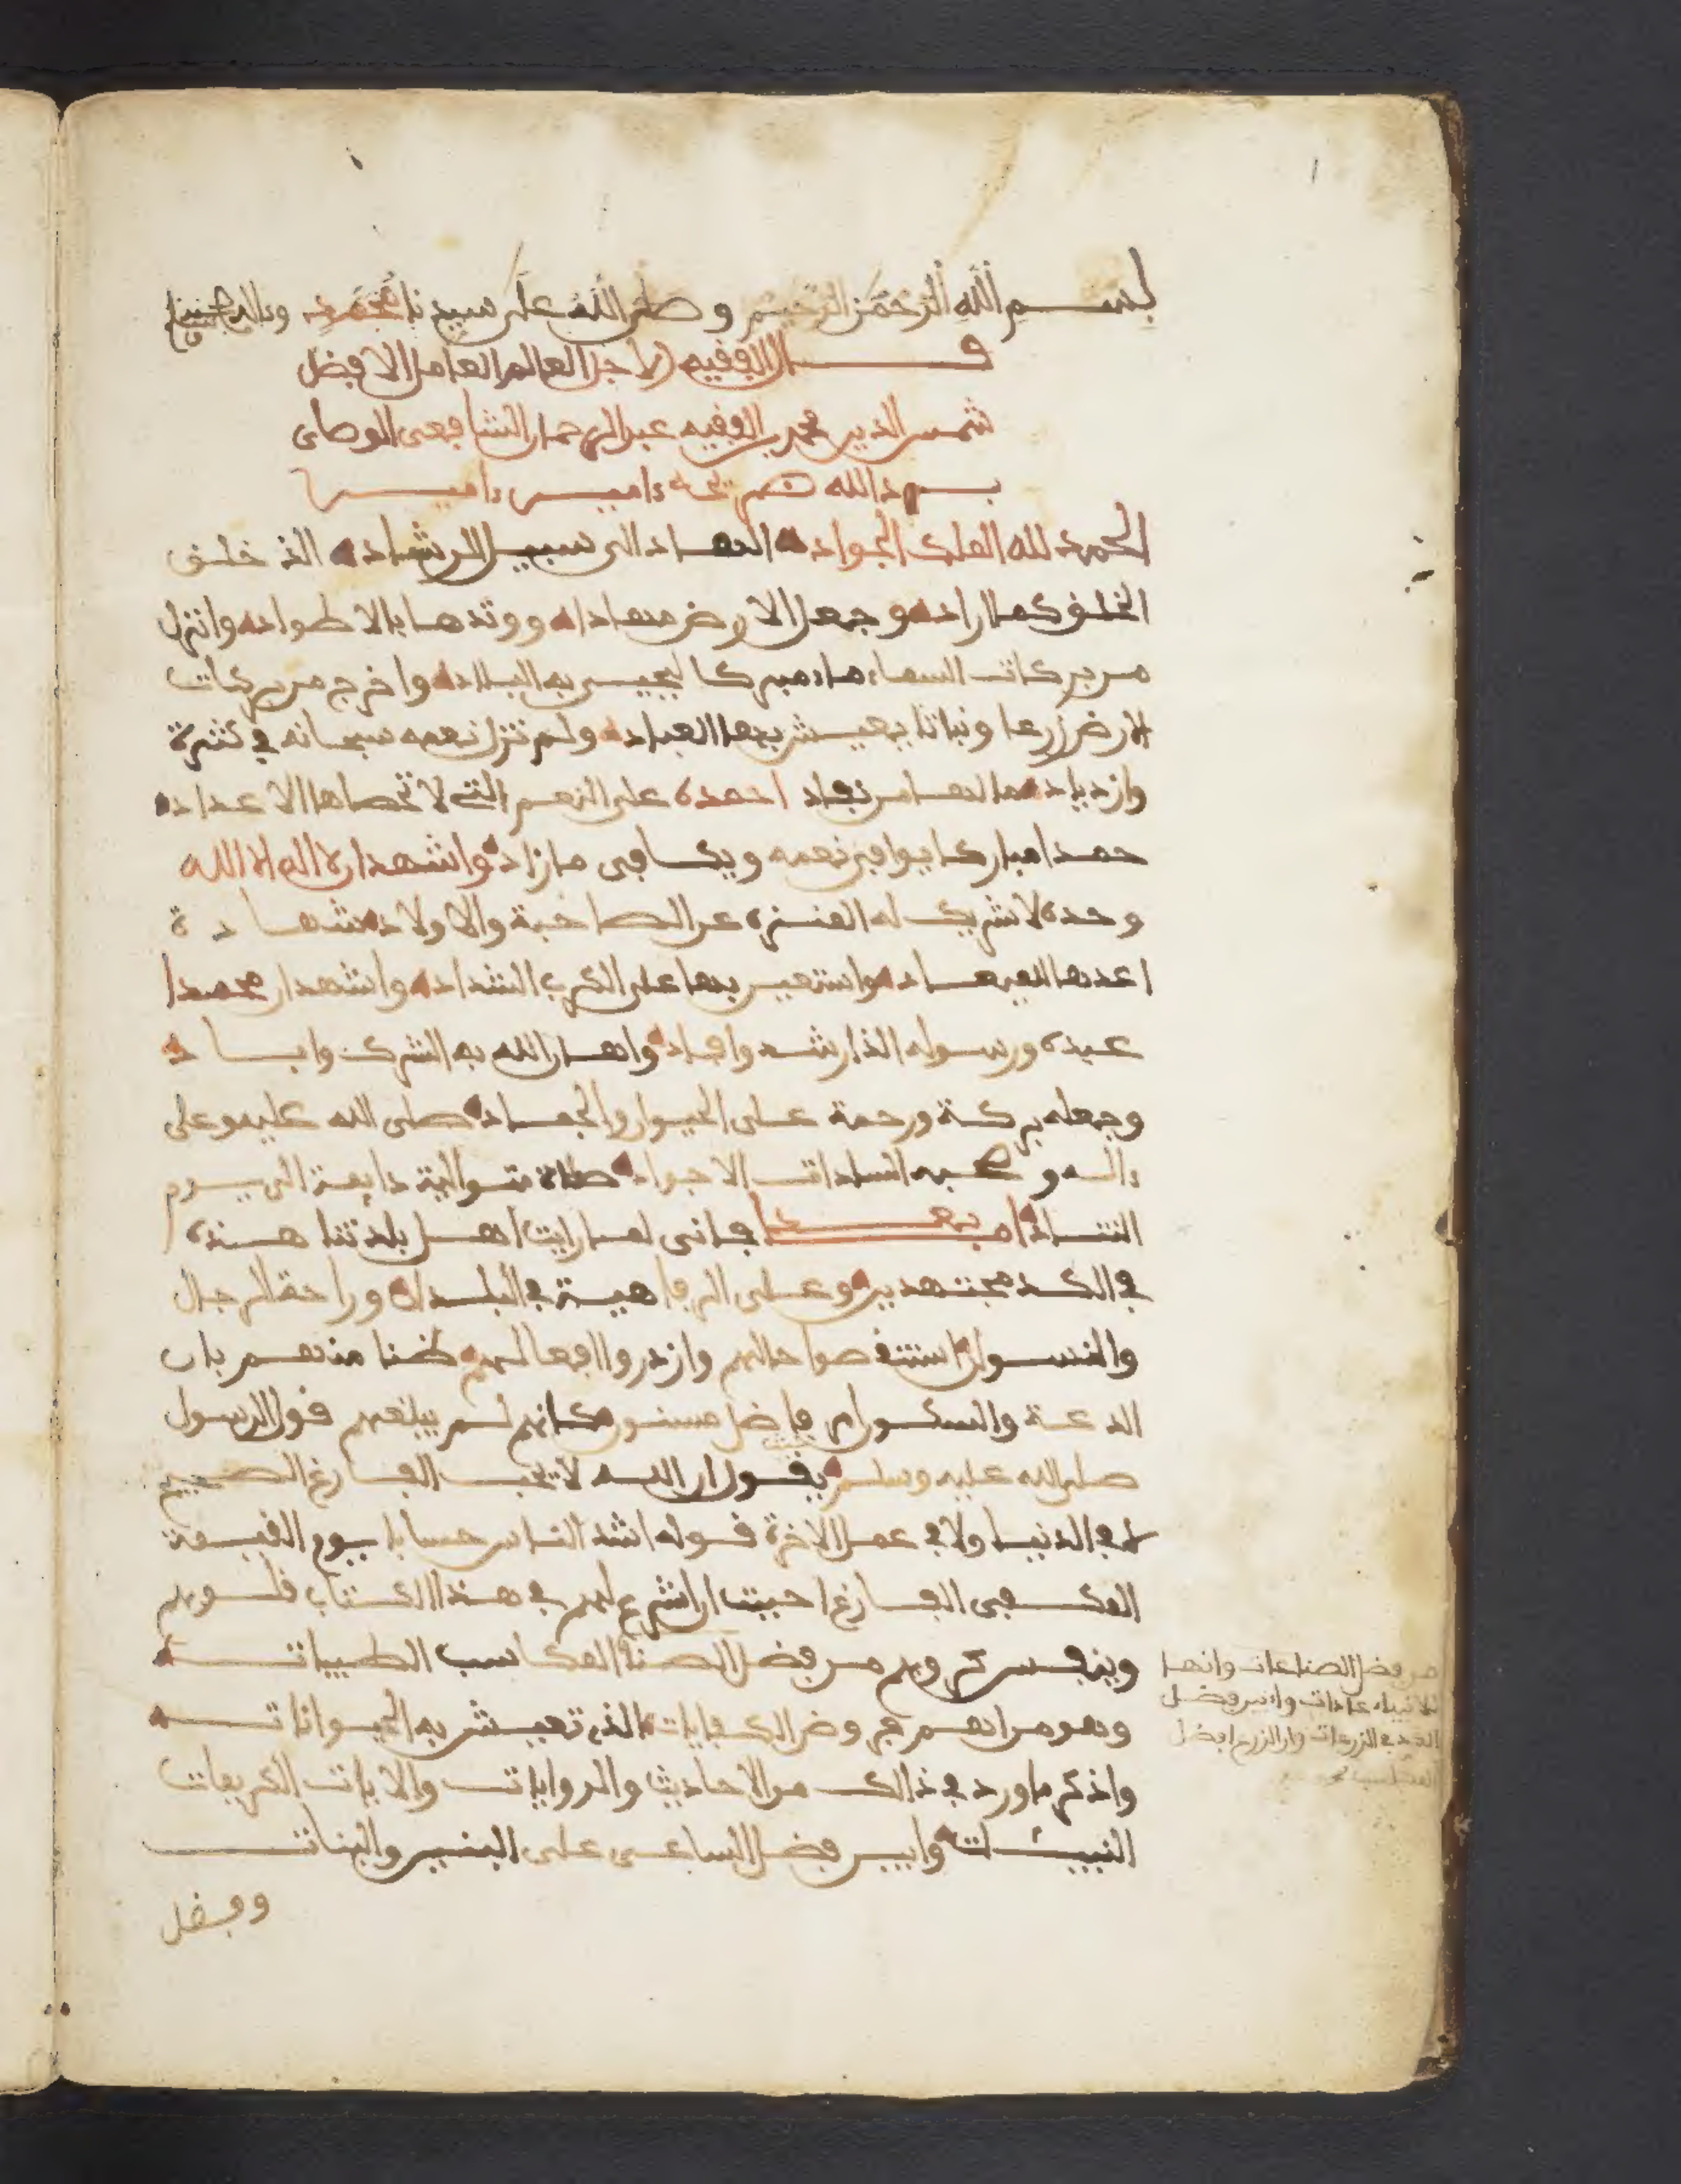 بسم الله الرحمن الرحيم وصلى الله على سيدنا محمد وءاله وصحبه
قال الفقيه الاجل العالم العامل الافضل
شمس الدين محمد بن الفقيه عبد الرحمان الشافعى الوصابى
ءامين ءامين
الحمد لله الملك الجواد الهاد الى سبيل الرشاد الذ خلق
الخلق كما اراد وجعل الارض مهادا ووتدها بالاطواد وانزل
من بركات السماء ماء مبركا ليحيى به البلاد واخرج من بركات
الارض زرعا ونباتا يعيش بها العباد ولم تزل نعمه سبحانه في كثرة
وازدياد ما لها من نفاد احمده على النعم التي لا تحصاها الاعداد
حمدا مباركا يوافى نعمه ويكافى ما زاد واشهد ان لا اله الا الله
وحده لا شريك له المنزه عن الصاحبة والاولاد شهادة
اعدها للميعاد واستعين بها على الكرب الشداد واشهد ان محمدا
عبده ورسوله الذ ارشد وافاد واهان الله به الشرك واباد
وجعله بركة ورحمة على الحيوان والجماد صلى الله عليه وعلى
ءاله وصحبه السادات الاجواد صلاة متوالية دايمة الى يوم
التناد اما بعد فانى لما رايت اهل بلدتنا هذه
في الكد مجتهدين وعلى الرفاهية في البلدان وراحة الرجال
والنسوان استنقصوا حالهم وازدروا افعالهم ظنا منهم بان
الدعة والسكون افضل مسنون وكانهم لم يبلغهم قول الرسول
صلى الله عليه وسلم يقول ان الله لا يحب الفارغ الصحيح
لا في الدنيا ولا في عمل الاخرة قوله اشد الناس حسابا يوم القيمة
المكفى الفارغ احببت ان اشرح لهم في هذا الكتاب قلوبهم
وينفس كروبهم من فضل الصنا المكاسب الطيبات
وهو من اهم فروض الكفايات الذ تعيش به الحيوانات
واذكر ما ورد في ذالك من الاحاديث والروايات والايات الكريمات
البينات وابين فضل الساعى على البنين والبنات
وفضل
من فضل الصناعات وانها
للانبياء عادات وابين فضل
في الزرعات وان الزرع افضل